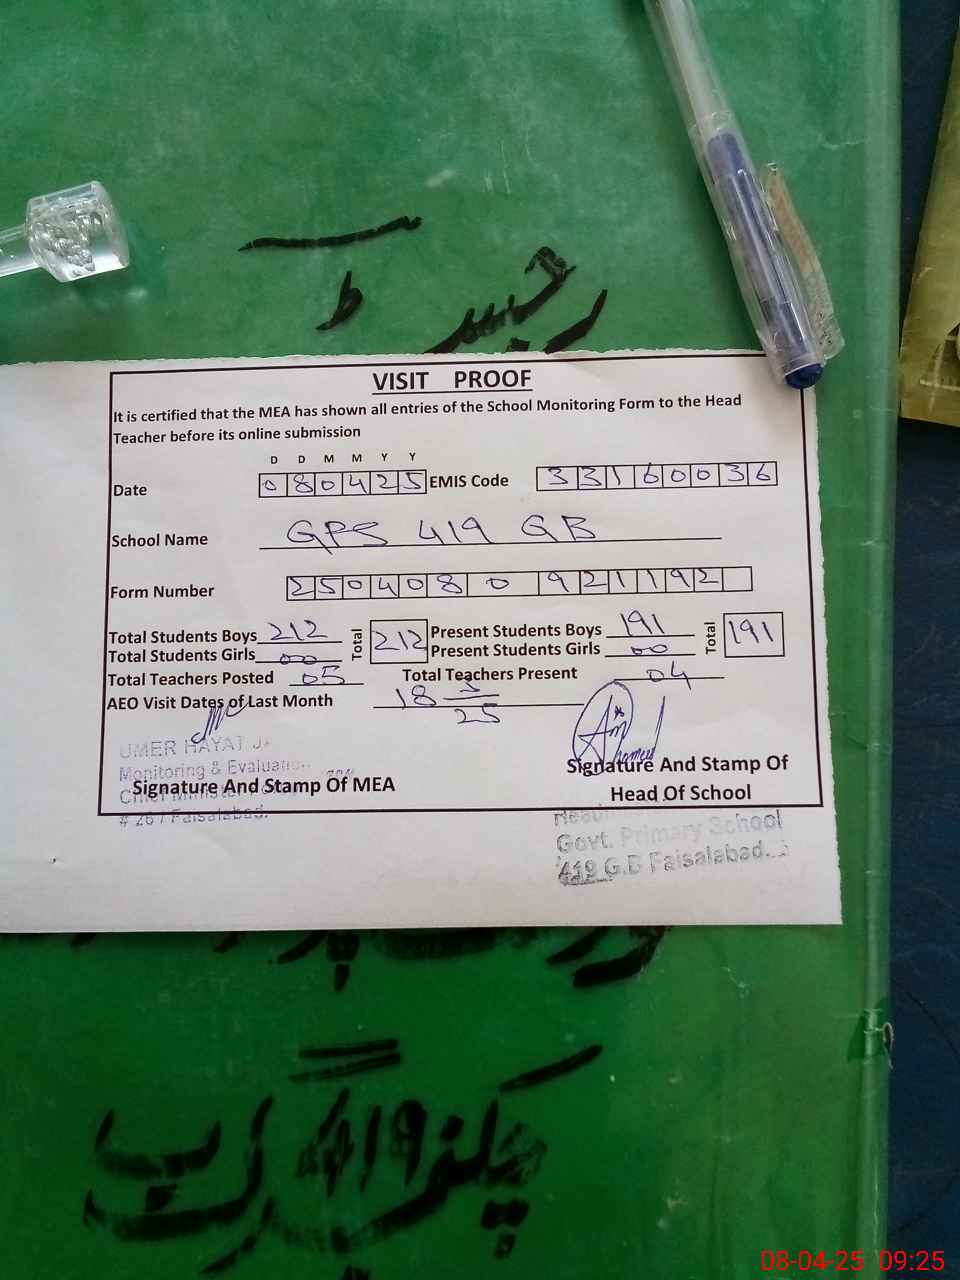 رجسٹر
VISIT PROOF
It is certified that the MEA has shown all entries of the School Monitoring Form to the Head
Teacher before its online submission
D D M M Y Y
Date 080425 EMIS Code 33160036
School Name GPS 419 GB
Form Number 2504080921192
Total Students Boys 212 Total 212 Present Students Boys 191 Total 191
Total Students Girls 00 Present Students Girls 00
Total Teachers Posted 05 Total Teachers Present 04
AEO Visit Dates of Last Month 18 3/25
UMER HAYAT
Monitoring &
Signature And Stamp Of MEA
Signature And Stamp Of
Head Of School
Chief Minister
# 267 Faisalabad.
Govt. Primary School
419 G.B Faisalabad.
419 گ ب
08-04-25 09:25